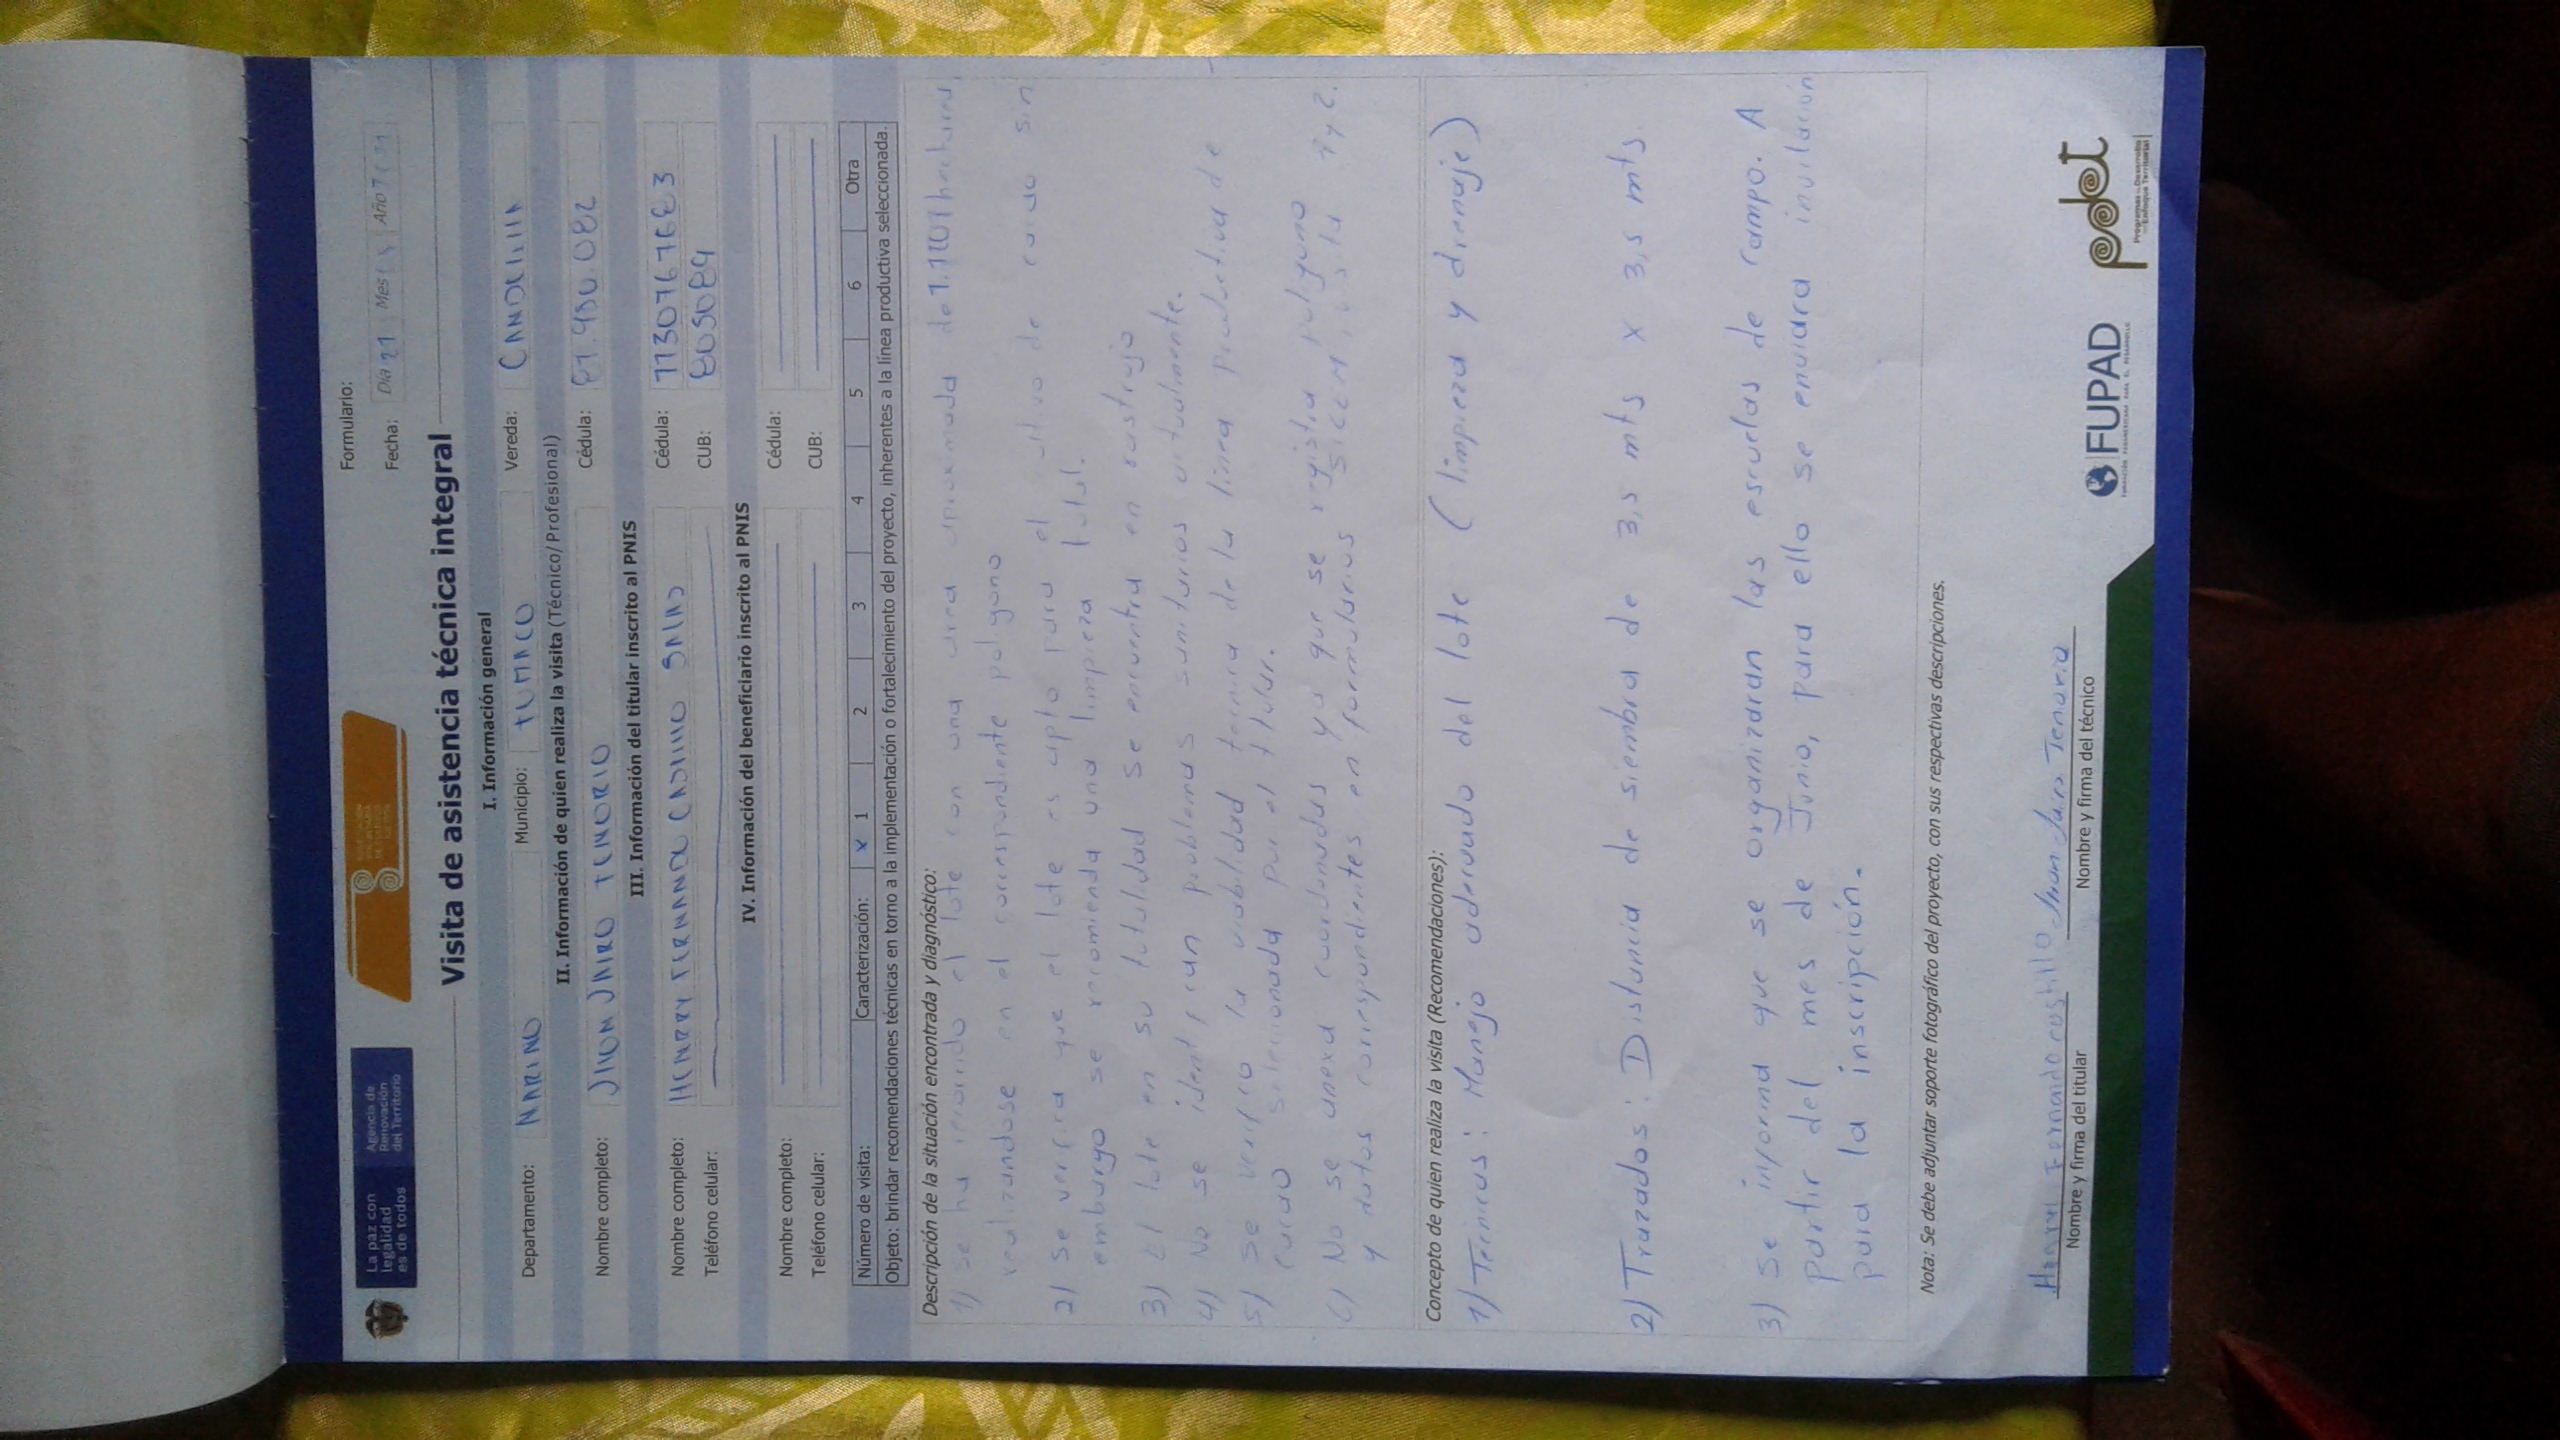 La paz con
legalidad
es de todos
Agencia de
Renovación
del Territorio
Formulario:
Fecha: Día 21 Mes 5 Año
Visita de asistencia técnica integral
I. Información general
Departamento: NARINO Municipio: TUMACO Vereda: CANDELILLA
II. Información de quien realiza la visita (Técnico/Profesional)
Nombre completo: JHON JAIRO TENORIO Cédula: 87.950.082
III. Información del titular inscrito al PNIS
Nombre completo: HENRRY FERNANDO CASTILLO Cédula:
Teléfono celular: CUB: 805089
IV. Información del beneficiario inscrito al PNIS
Nombre completo: Cédula:
Teléfono celular: CUB:
Número de visita: Caracterización: x 1 2 3 4 5 6 Otra
Objeto: brindar recomendaciones técnicas en torno a la implementación o fortalecimiento del proyecto, inherentes a la línea productiva seleccionada.
Descripción de la situación encontrada y diagnóstico:
1) se ha recorrido el lote con una area aproximada de hectarea
realizandose en el correspondiente poligono
2) se verifica que el lote es apto para el cultivo de cacao sin
embargo se recomienda una limpieza total.
3) El lote en su totalidad se encuentra en rastrojo
4) No se identifican problemas sanitarios actualmente.
5) se verifico la viabilidad tecnica de la linea productiva de
cacao seleccionada por el titular.
6) No se anexa coordenadas ya que se registra poligono
y datos correspondientes en formularios 1 y 2.
Concepto de quien realiza la visita (Recomendaciones):
1) Tecnicas: Manejo adecuado del lote (limpieza y drenaje)
2) Trazados: Distancia de siembra de 3,5 mts x 3,5 mts.
3) Se informa que se organizaran las escuelas de campo. A
partir del mes de Junio, para ello se enviara invitación
para la inscripción.
Nota: Se debe adjuntar soporte fotográfico del proyecto, con sus respectivas descripciones.
Fernando castillo Jhon Jairo Tenorio
Nombre y firma del titular Nombre y firma del técnico
FUPAD
pdet
Programas de Desarrollo
con Enfoque Territorial